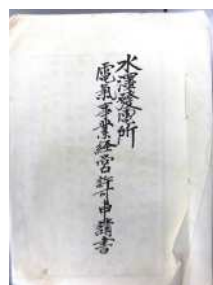 水澤發電所
電氣事業経営許可申請書